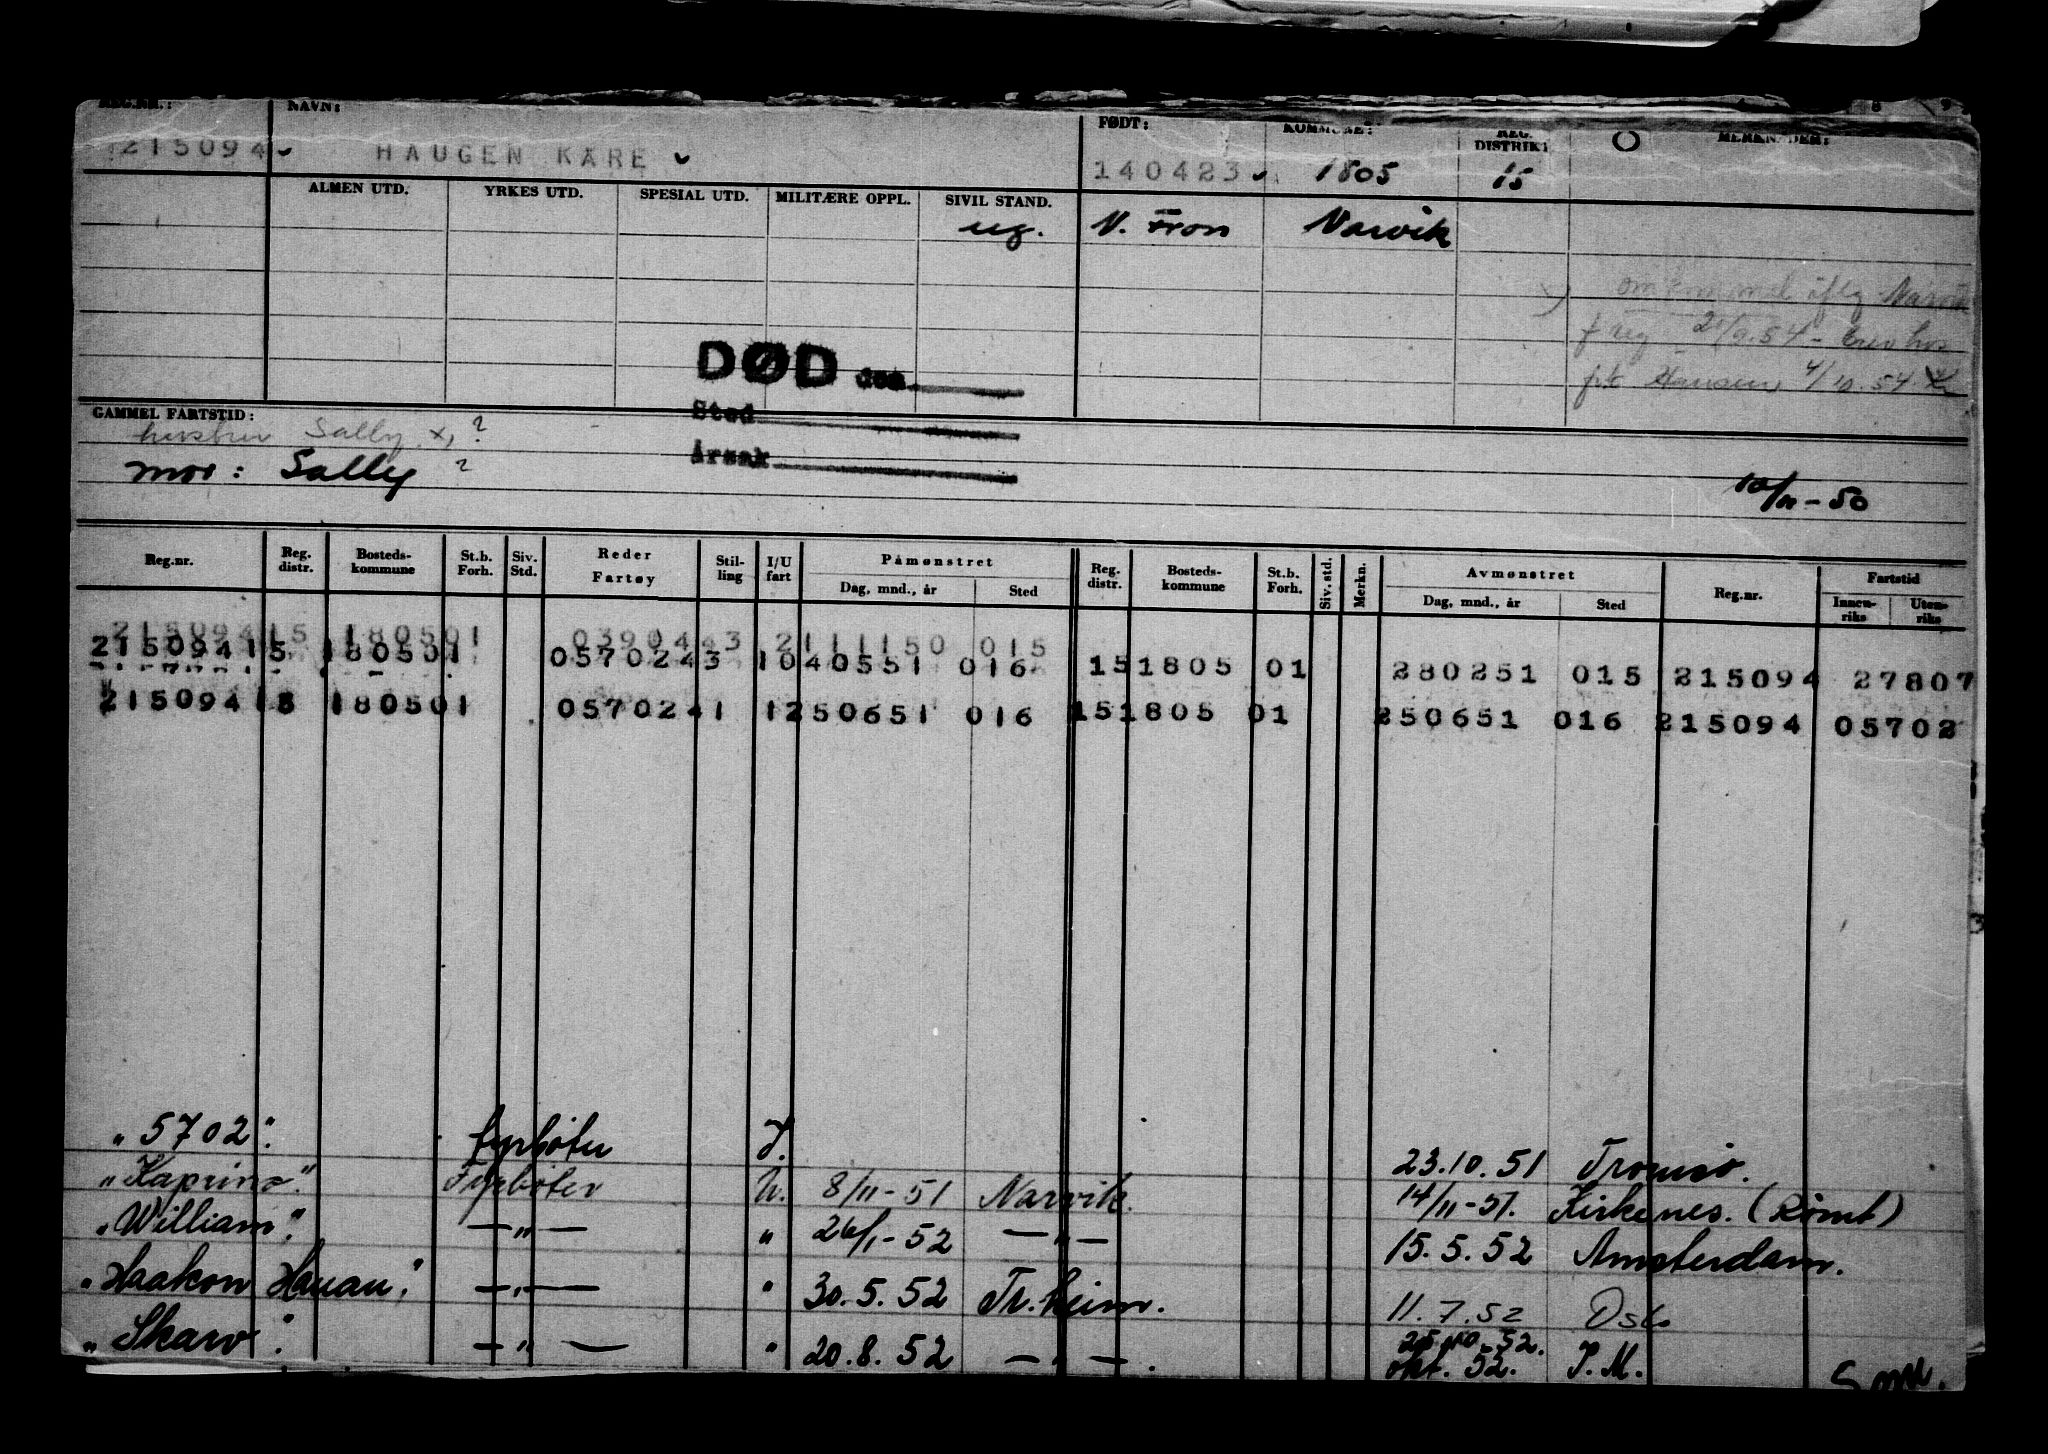 REG.NR.: NAVN: FØDT: KOMMUNE: REG. DISTRIKT MERKNADER:
215094 HAUGEN KÅRE 140423 1805 15
ALMEN UTD. YRKES UTD. SPESIAL UTD. MILITÆRE OPPL. SIVIL STAND.
ug. N. Fron Narvik
Narvik
f reg 21/9.54
frk Hansen 4/10.54
DØD den
Sted
Årsak
GAMMEL FARTSTID:
hustru Sally x) ?
mor: Sally ?
50
Reg.nr. Reg. distr. Bosteds-kommune St.b. Forh. Siv. Std. Reder Fartøy Stil-ling I/U fart Påmønstret Dag, mnd., år Sted Reg. distr. Bosteds-kommune St.b. Forh. Siv. std. Merkn. Avmønstret Dag, mnd., år Sted Reg.nr. Fartstid Innen-riks Uten-riks
215094 15 1805 01 03904 43 2 111150 015
215094 15 1805 01 05702 43 1 040551 016 15 1805 01 280251 015 215094 27807
215094 15 1805 01 05702 41 1 250651 016 15 1805 01 250651 016 215094 05702
"5702". fyrbøter I. 23.10.51 Tromsø.
"Kaprino". Fyrbøter U. 8/11-51 Narvik. 14/11-51. Kirkenes. (Rømt)
"William". — " — " 26/1-52 — " — 15.5.52 Amsterdam.
"Haakon Hauan". — " — " 30.5.52 Tr.heim. 11.7.52 Oslo
"Skarv". — " — " 20.8.52 — " —. 25.10.52.
okt. 52. P.M.